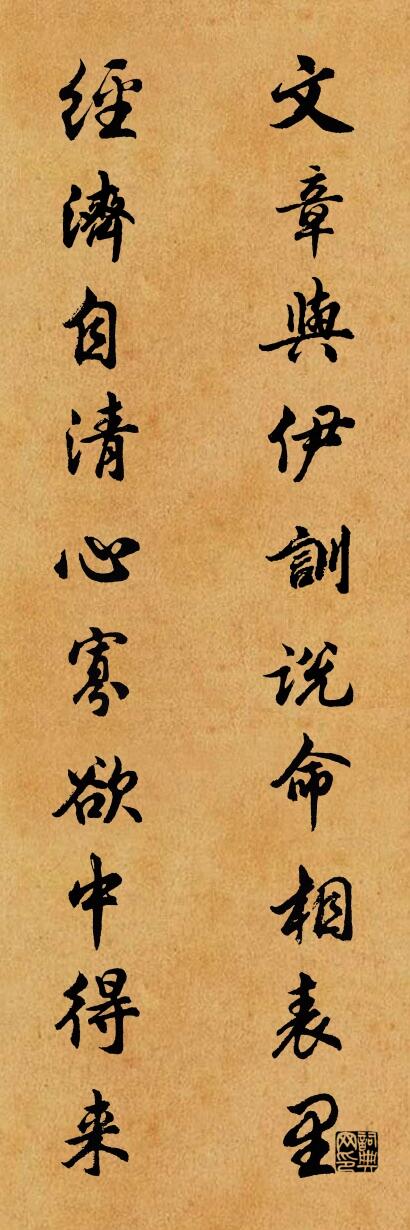 文章與伊訓説命相表里
經濟自清心寡欲中得来
詞典网印